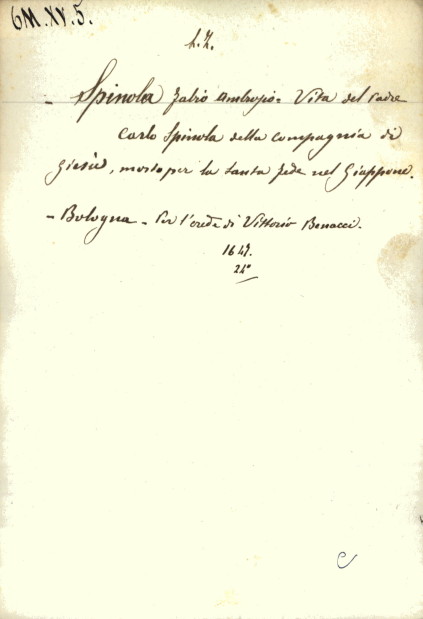 6M.XV.5.
h.Z.
- Spinola Fabio Ambrogio = Vita del Padre
Carlo Spinola della Compagnia di
Giesù, morto per la Santa Fede nel Giappone.
- Bologna - Per l'erede di Vittorio Benacci.
1647.
24º
C